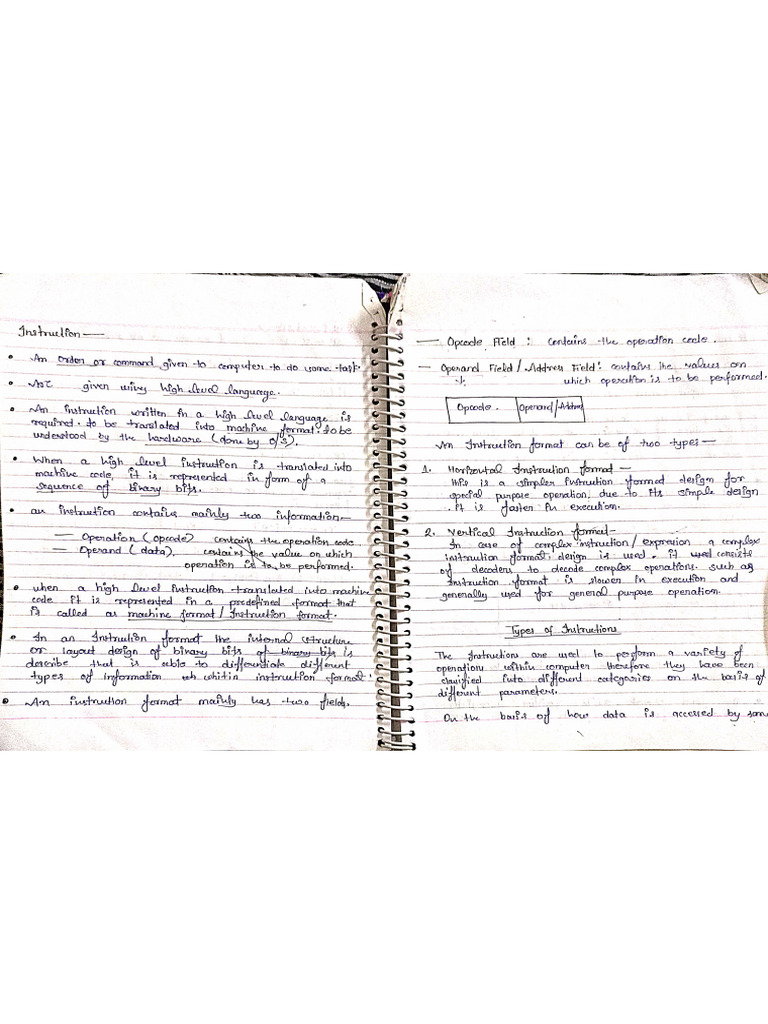 Instruction —
• An order or command given to computer to do some task.
• Are given using high level language.
• An instruction written in a high level language is
required to be translated into machine format to be
understood by the hardware (done by O/S).
• When a high level instruction is translated into
machine code, it is represented in form of a
sequence of binary bits.
• an instruction contains mainly two information—
— Operation (opcode) contains the operation code
— Operand (data). contains the value on which
operation is to be performed.
• when a high level instruction translated into machine
code it is represented in a predefined format that
it called as machine format / Instruction format.
• In an Instruction format the internal structure
or layout design of binary bits of binary bits is
describe that is able to differentiate different
types of information within instruction format.
• An instruction format mainly has two fields.
— Opcode Field : contains the operation code.
— Operand Field / Address Field : contains the values on
which operation is to be performed.
Opcode. Operand/Address
An Instruction format can be of two types—
1. Horizontal Instruction format —
this is a simpler instruction formed design for
special purpose operation, due to its simple design
it is faster in execution.
2. Vertical Instruction format—
In case of complex instruction/ expression a complex
instruction format design is used. it used consists
of decoders to decode complex operations. such as
Instruction format is slower in execution and
generally used for general purpose operation.
Types of Instructions
The Instructions are used to perform a variety of
operations within computer therefore they have been
classified into different categories on the basis of
different parameters.
On the basis of how data is accessed by some